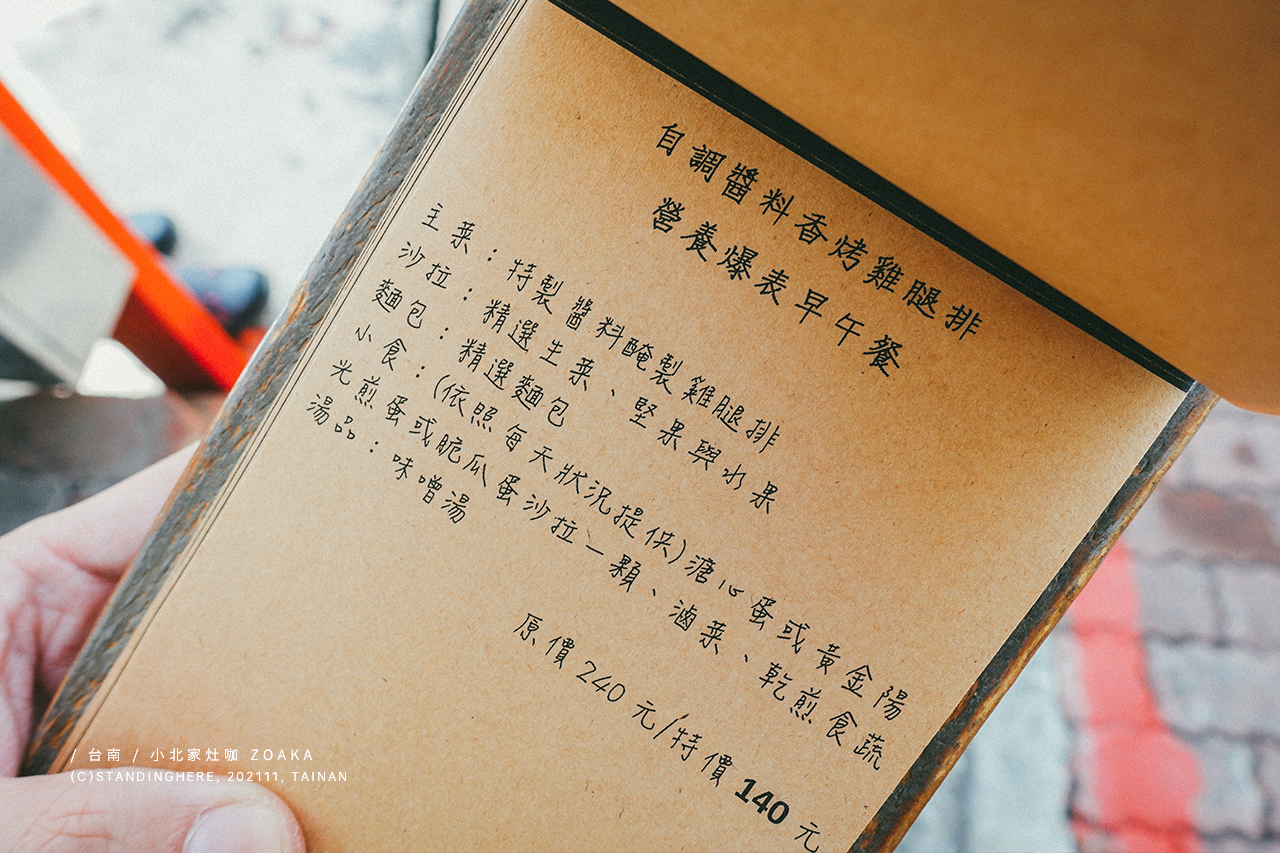 自調醬料香烤雞腿排
營養爆表早午餐
主菜：特製醬料醃製雞腿排
沙拉：精選生菜、堅果與水果
麵包：精選麵包
小食：(依照每天狀況提供)溏心蛋或黃金陽
光煎蛋或脆瓜蛋沙拉一顆、滷菜、乾煎食蔬
湯品：味噌湯
原價 240 元/特價 140 元
/ 台南 / 小北家灶咖 ZOAKA
(C)STANDINGHERE, 202111, TAINAN